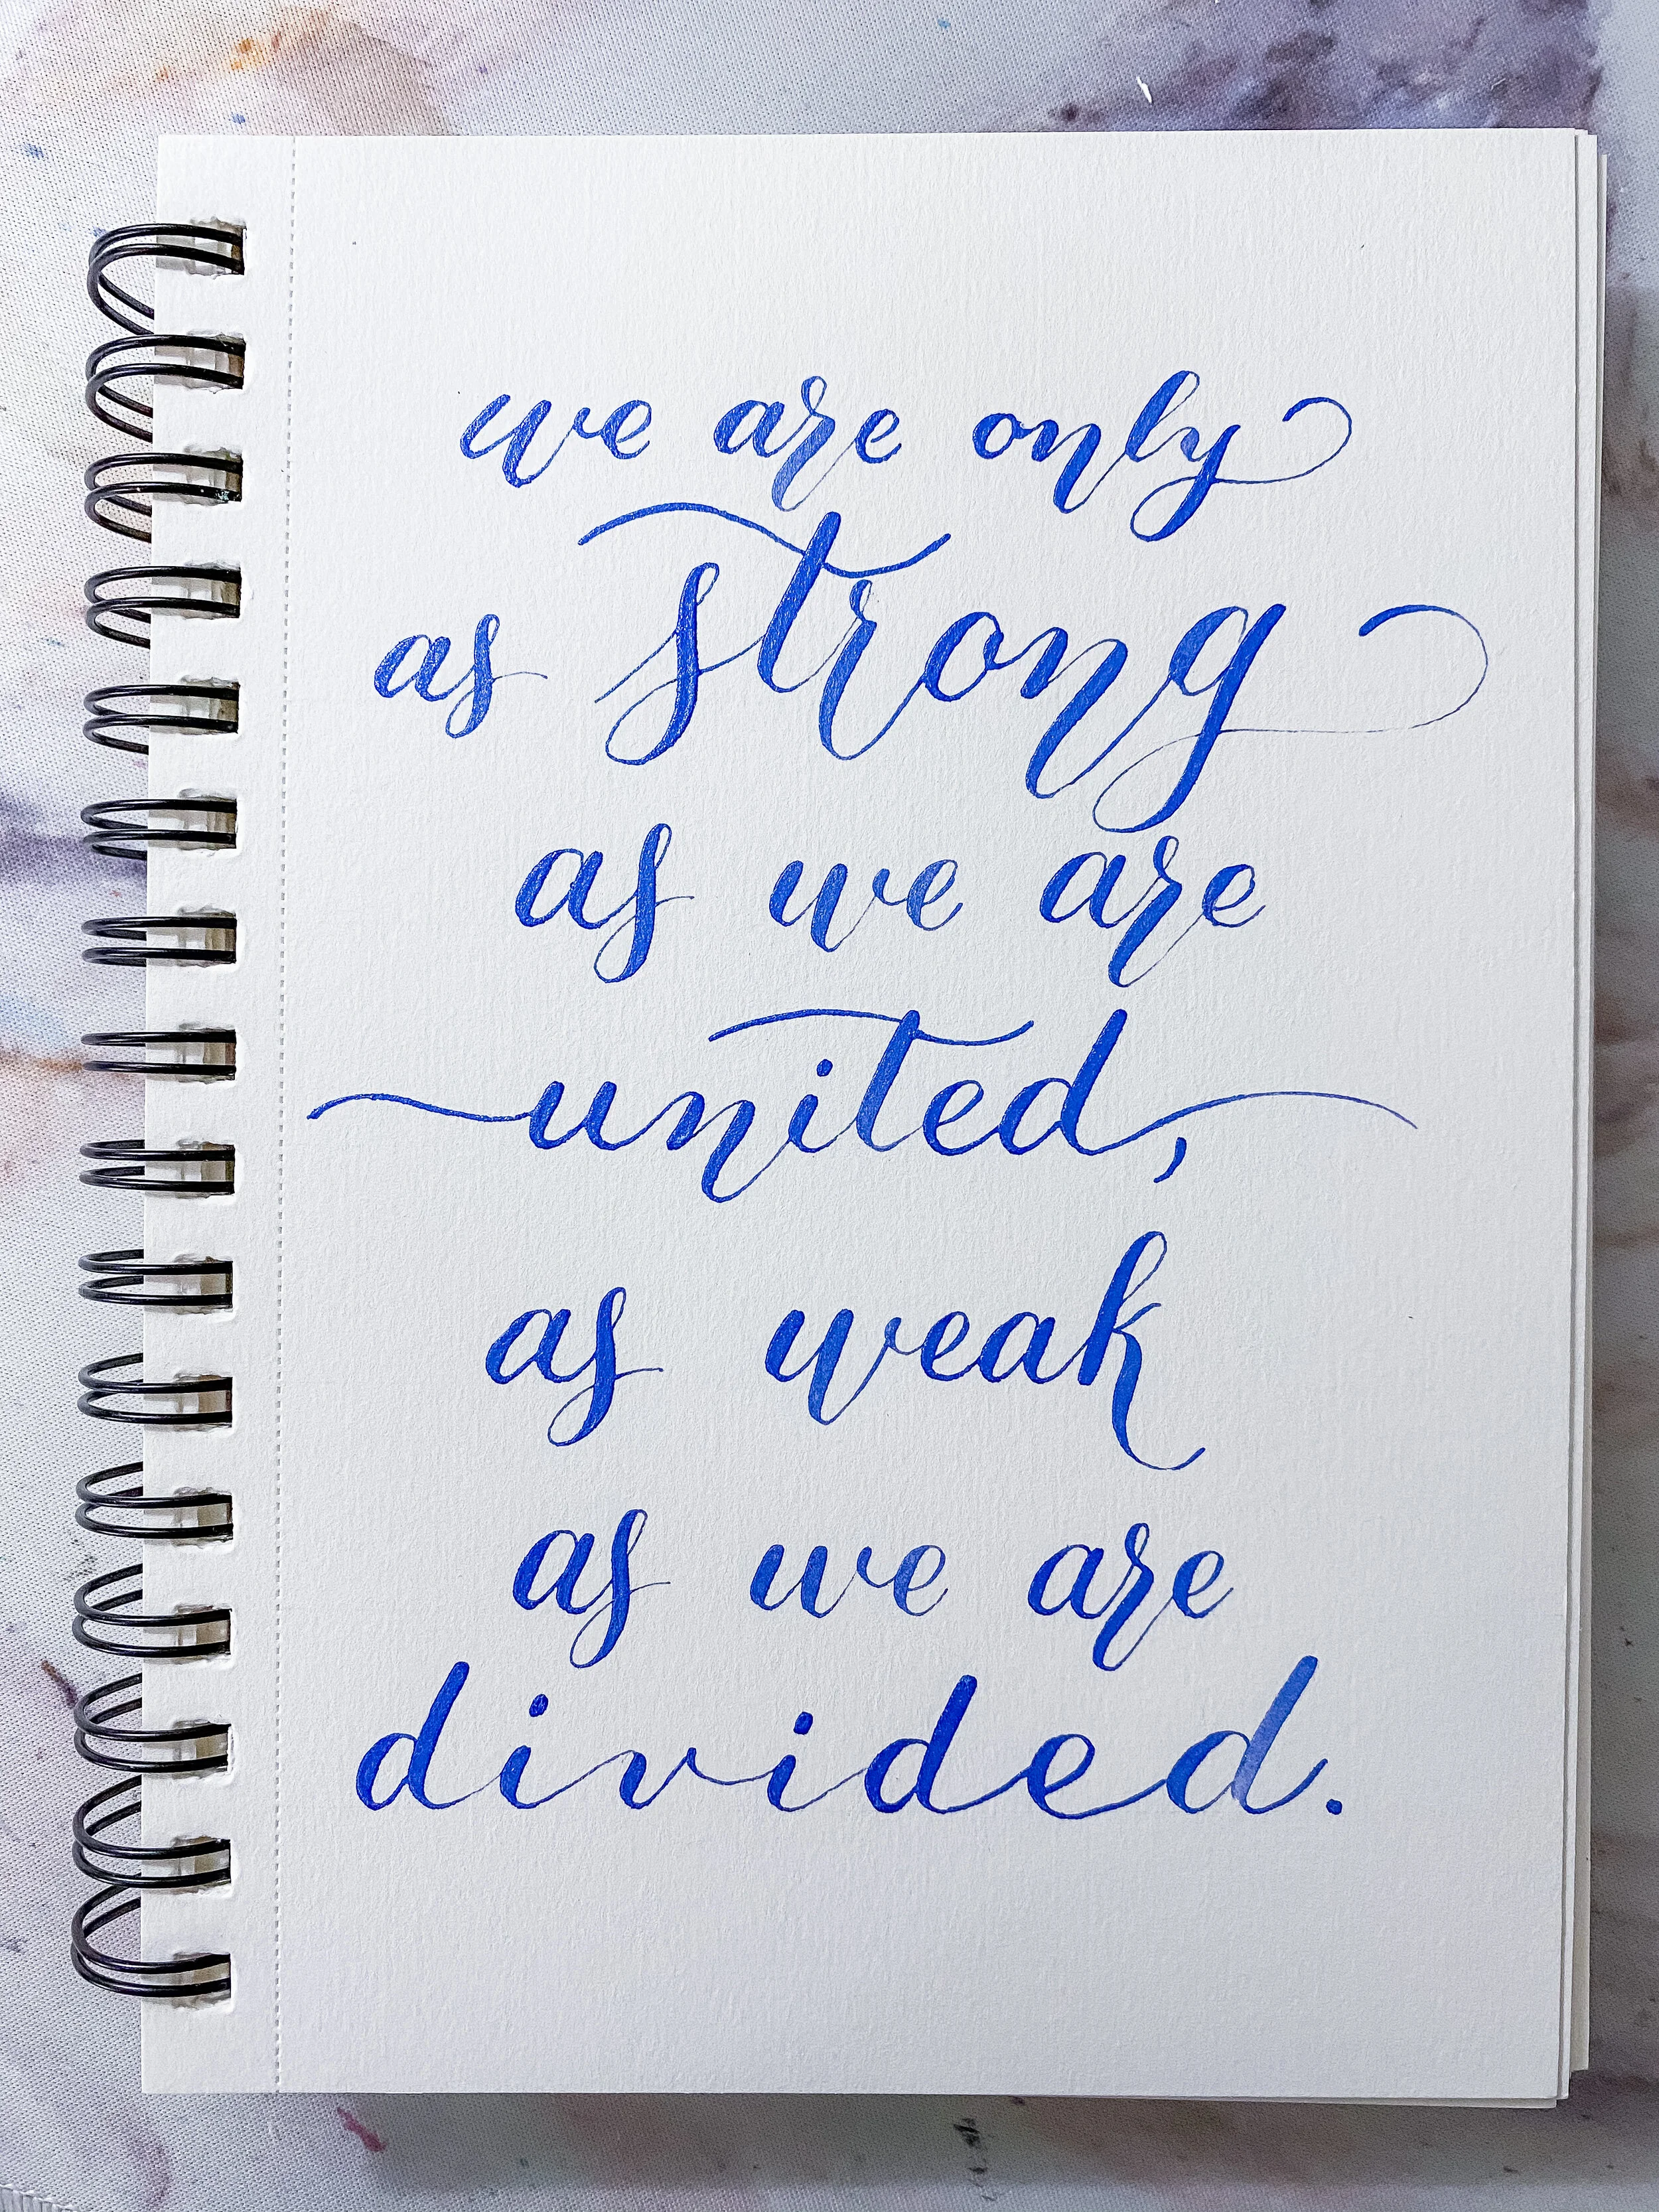 we are only
as strong
as we are
united,
as weak
as we are
divided.